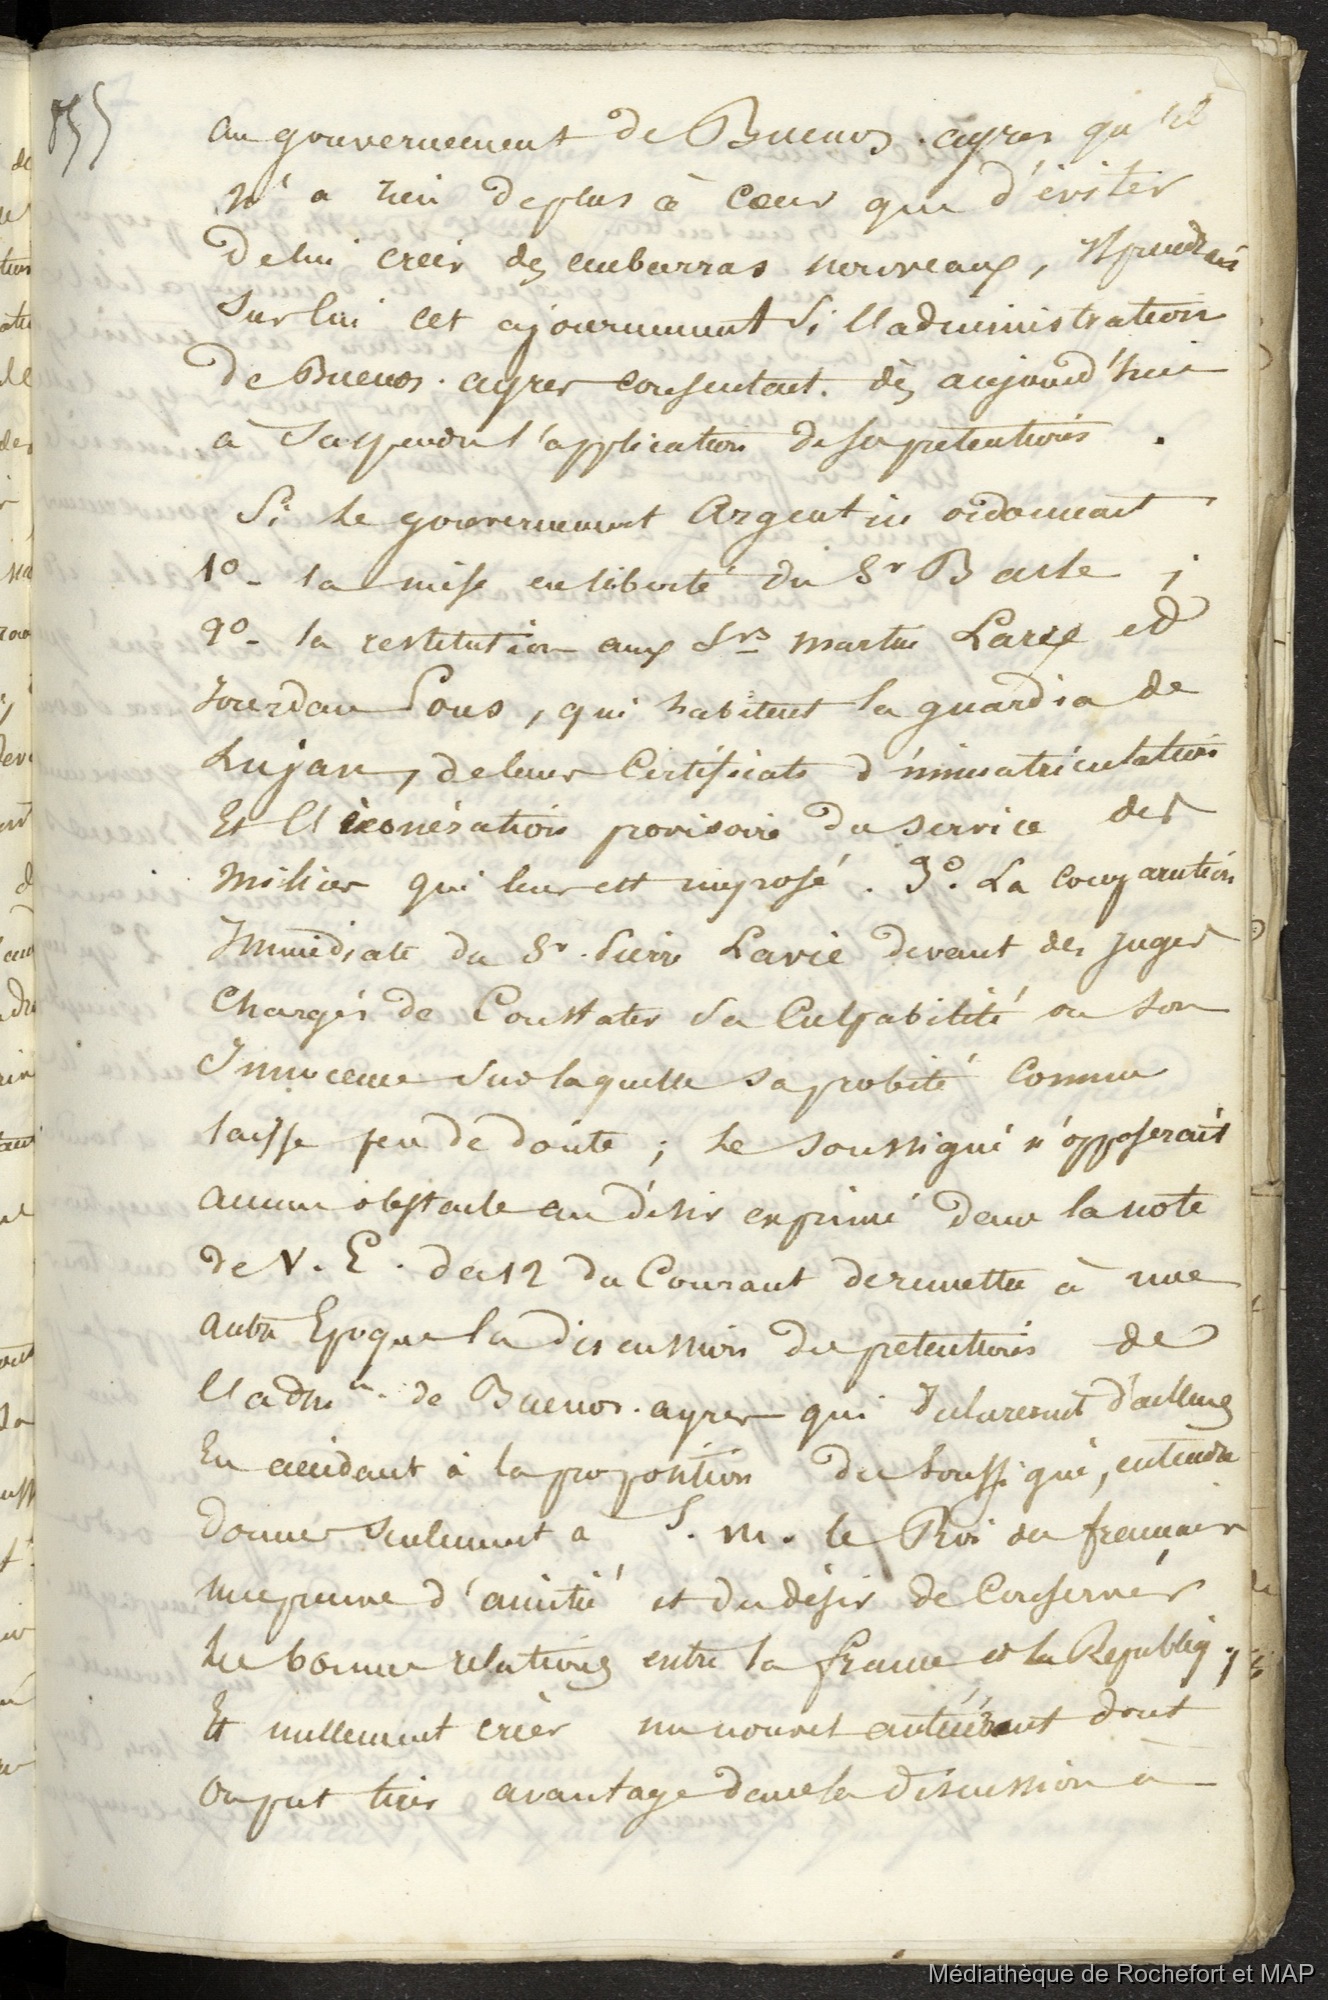 855
au gouvernement de Buenos-ayres qu'il
n'a rien deplus à Coeur que d'éviter
delui créer des embarras nouveaux, Il prendrait
sur lui cet ajournement si l'administration
de Buenos-ayres consentait dès aujourd'hui
à Suspendre l'application deses prétentions.
Si le gouvernement Argentin ordonnait
1º- la mise en liberté du Sr Bacle ;
2º- la restitution aux Srs Martin Larre et
Jourdan Pons, qui habitent la guardia de
Lujan, deleurs Certificats d'immatriculation
Et l'exonération provisoire du Service des
Milices qui leur est imposé. 3º. La comparution
Immédiate du Sr. Pierre Lavie devant des Juges
Chargés de Constater sa Culpabilité ou son
Innocence sur laquelle sa probité connue
laisse peu de doute ; le soussigné n'opposerait
aucun obstacle au désir exprimé dans la note
de V. E. du 12 du Courant de remettre à une
autre Epoque la discussion des prétentions de
l'admon. de Buenos-ayres qui déclarerait d'ailleurs
En accédant à la proposition du Soussigné, entendre
donner seulement a S. M. le Roi des français
une preuve d'amitié et du désir de Conserver
les bonnes relations entre la france et la Républiq,
Et nullement créer un nouvel antécédent dont
on put tirer avantage dans la discussion à
Médiathèque de Rochefort et MAP